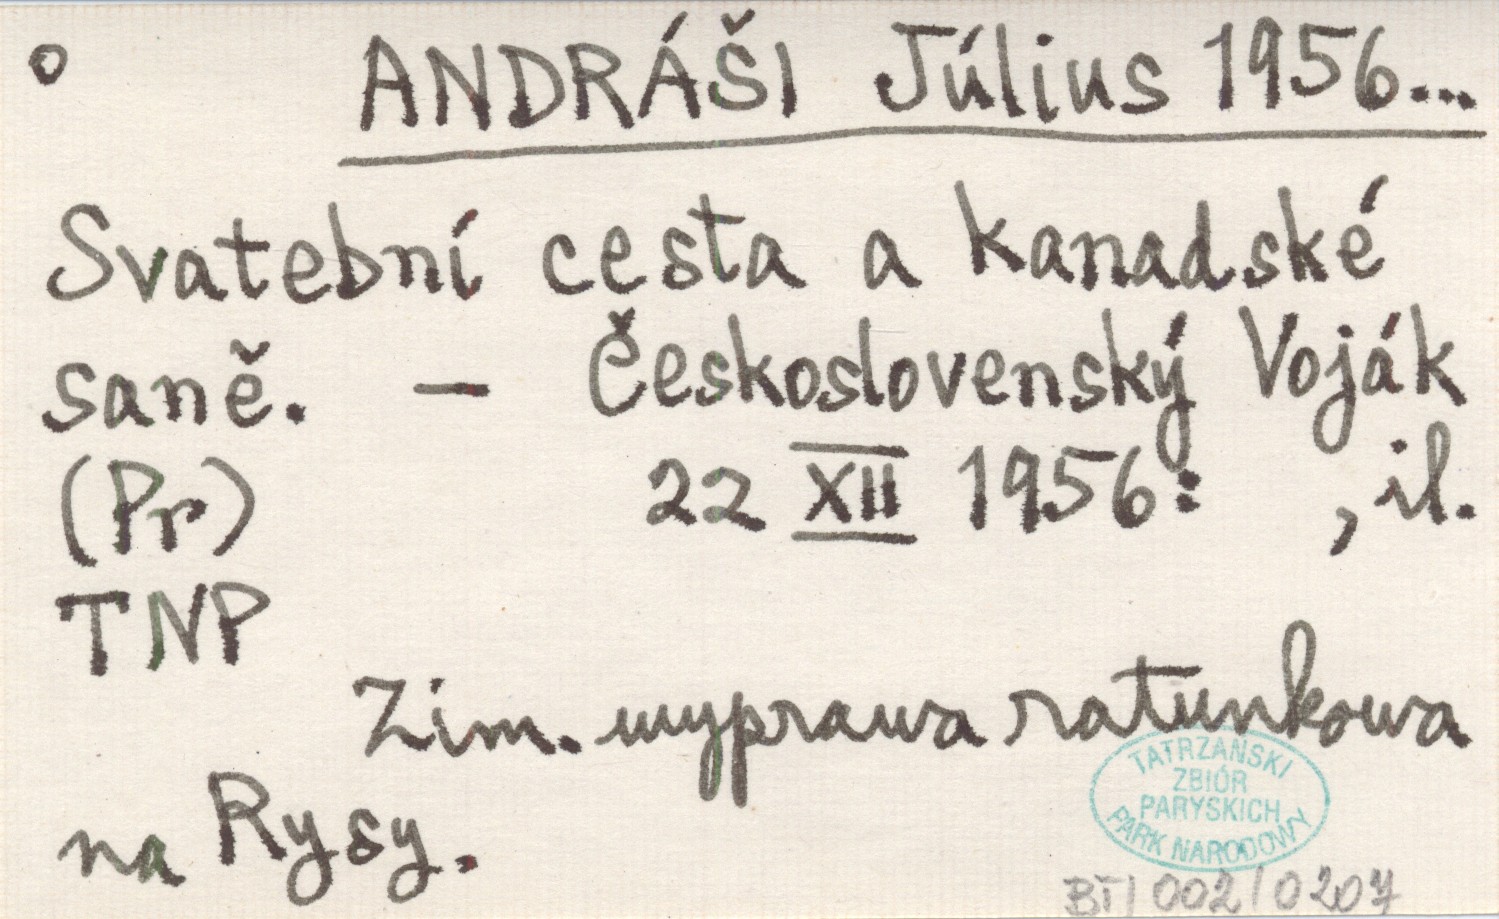 o ANDRÁŠI Július 1956...
Svatební cesta a kanadské
saně. – Československý Voják
(Pr) 22 XII 1956: , il.
TNP
Zim. wyprawa ratunkowa
na Rysy.
TATRZAŃSKI
ZBIÓR
PARYSKICH
PARK NARODOWY
BT/002/0207